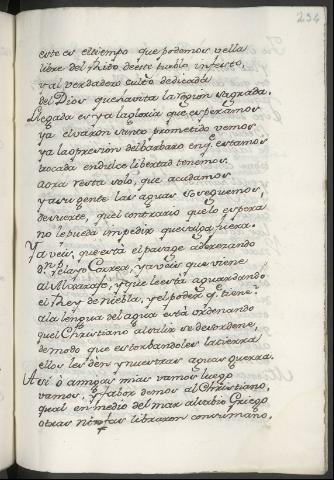 234
este es el tiempo que podemos vella
libre del phido deeste pueblo infesto,
y al verdadero culto dedicada
del Dios que habita la region sagrada.
Llegada es ya la gloria que esperamos
ya el varon santo prometido vemos
ya la opresion del barbaro en q. estamos
trocada en dulce libertad tenemos.
aora resta solo, que acudamos
y a su gente las aguas soseguemos,
de suerte, qu el contrario que lo espera
no le pueda impedir que salga fuera.
Ya veis, que está el pasage aderezando
D.n Pelayo Correa, ya veis que viene
al Alxarafe, y que le está aguardando
el Rey de Niebla, y el poder q. tiene:
a la lengua del agua está ordenando
qu el Christiano al salir se desordene,
de modo que estorbandoles la tierra
ellos les den y nuestras aguas guerra.
Asi ò amigas mias vamos luego
vamos, y fabor demos al Christiano,
qual en medio del mar al sabio Griego
otras ninfas libraron con su mano,